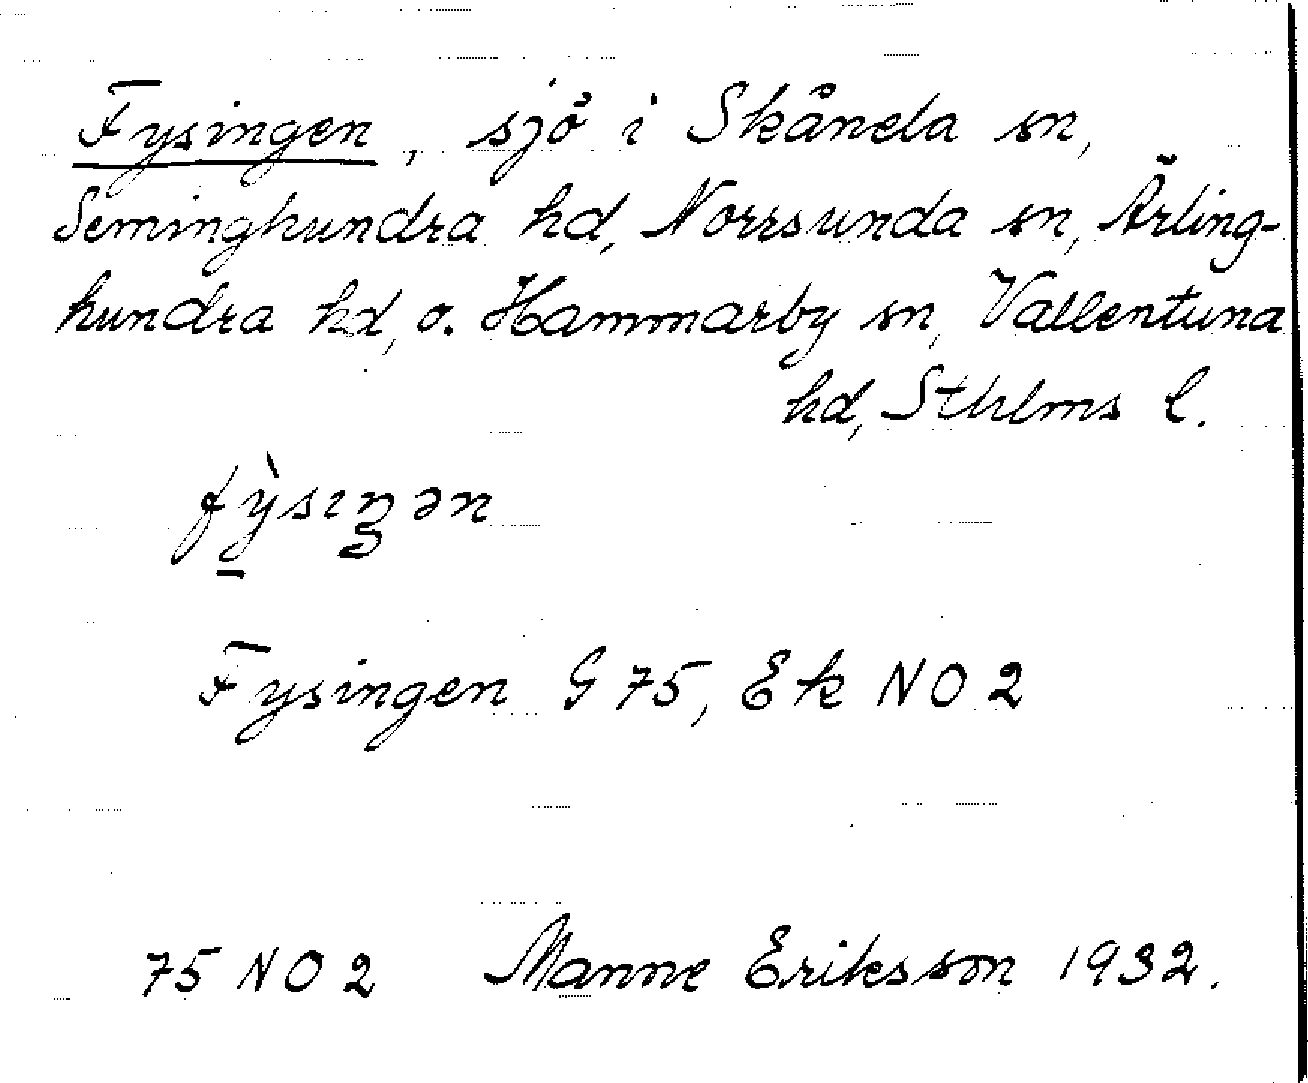 Fysingen, sjö i Skånela sn,
Seminghundra hd, Norrsunda sn, Ärling-
hundra hd, o. Hammarby sn, Vallentuna
hd, Sthlms l.
fỳ̱sıŋən
Fysingen G 75, Ek NO 2
75 NO 2 Manne Eriksson 1932.